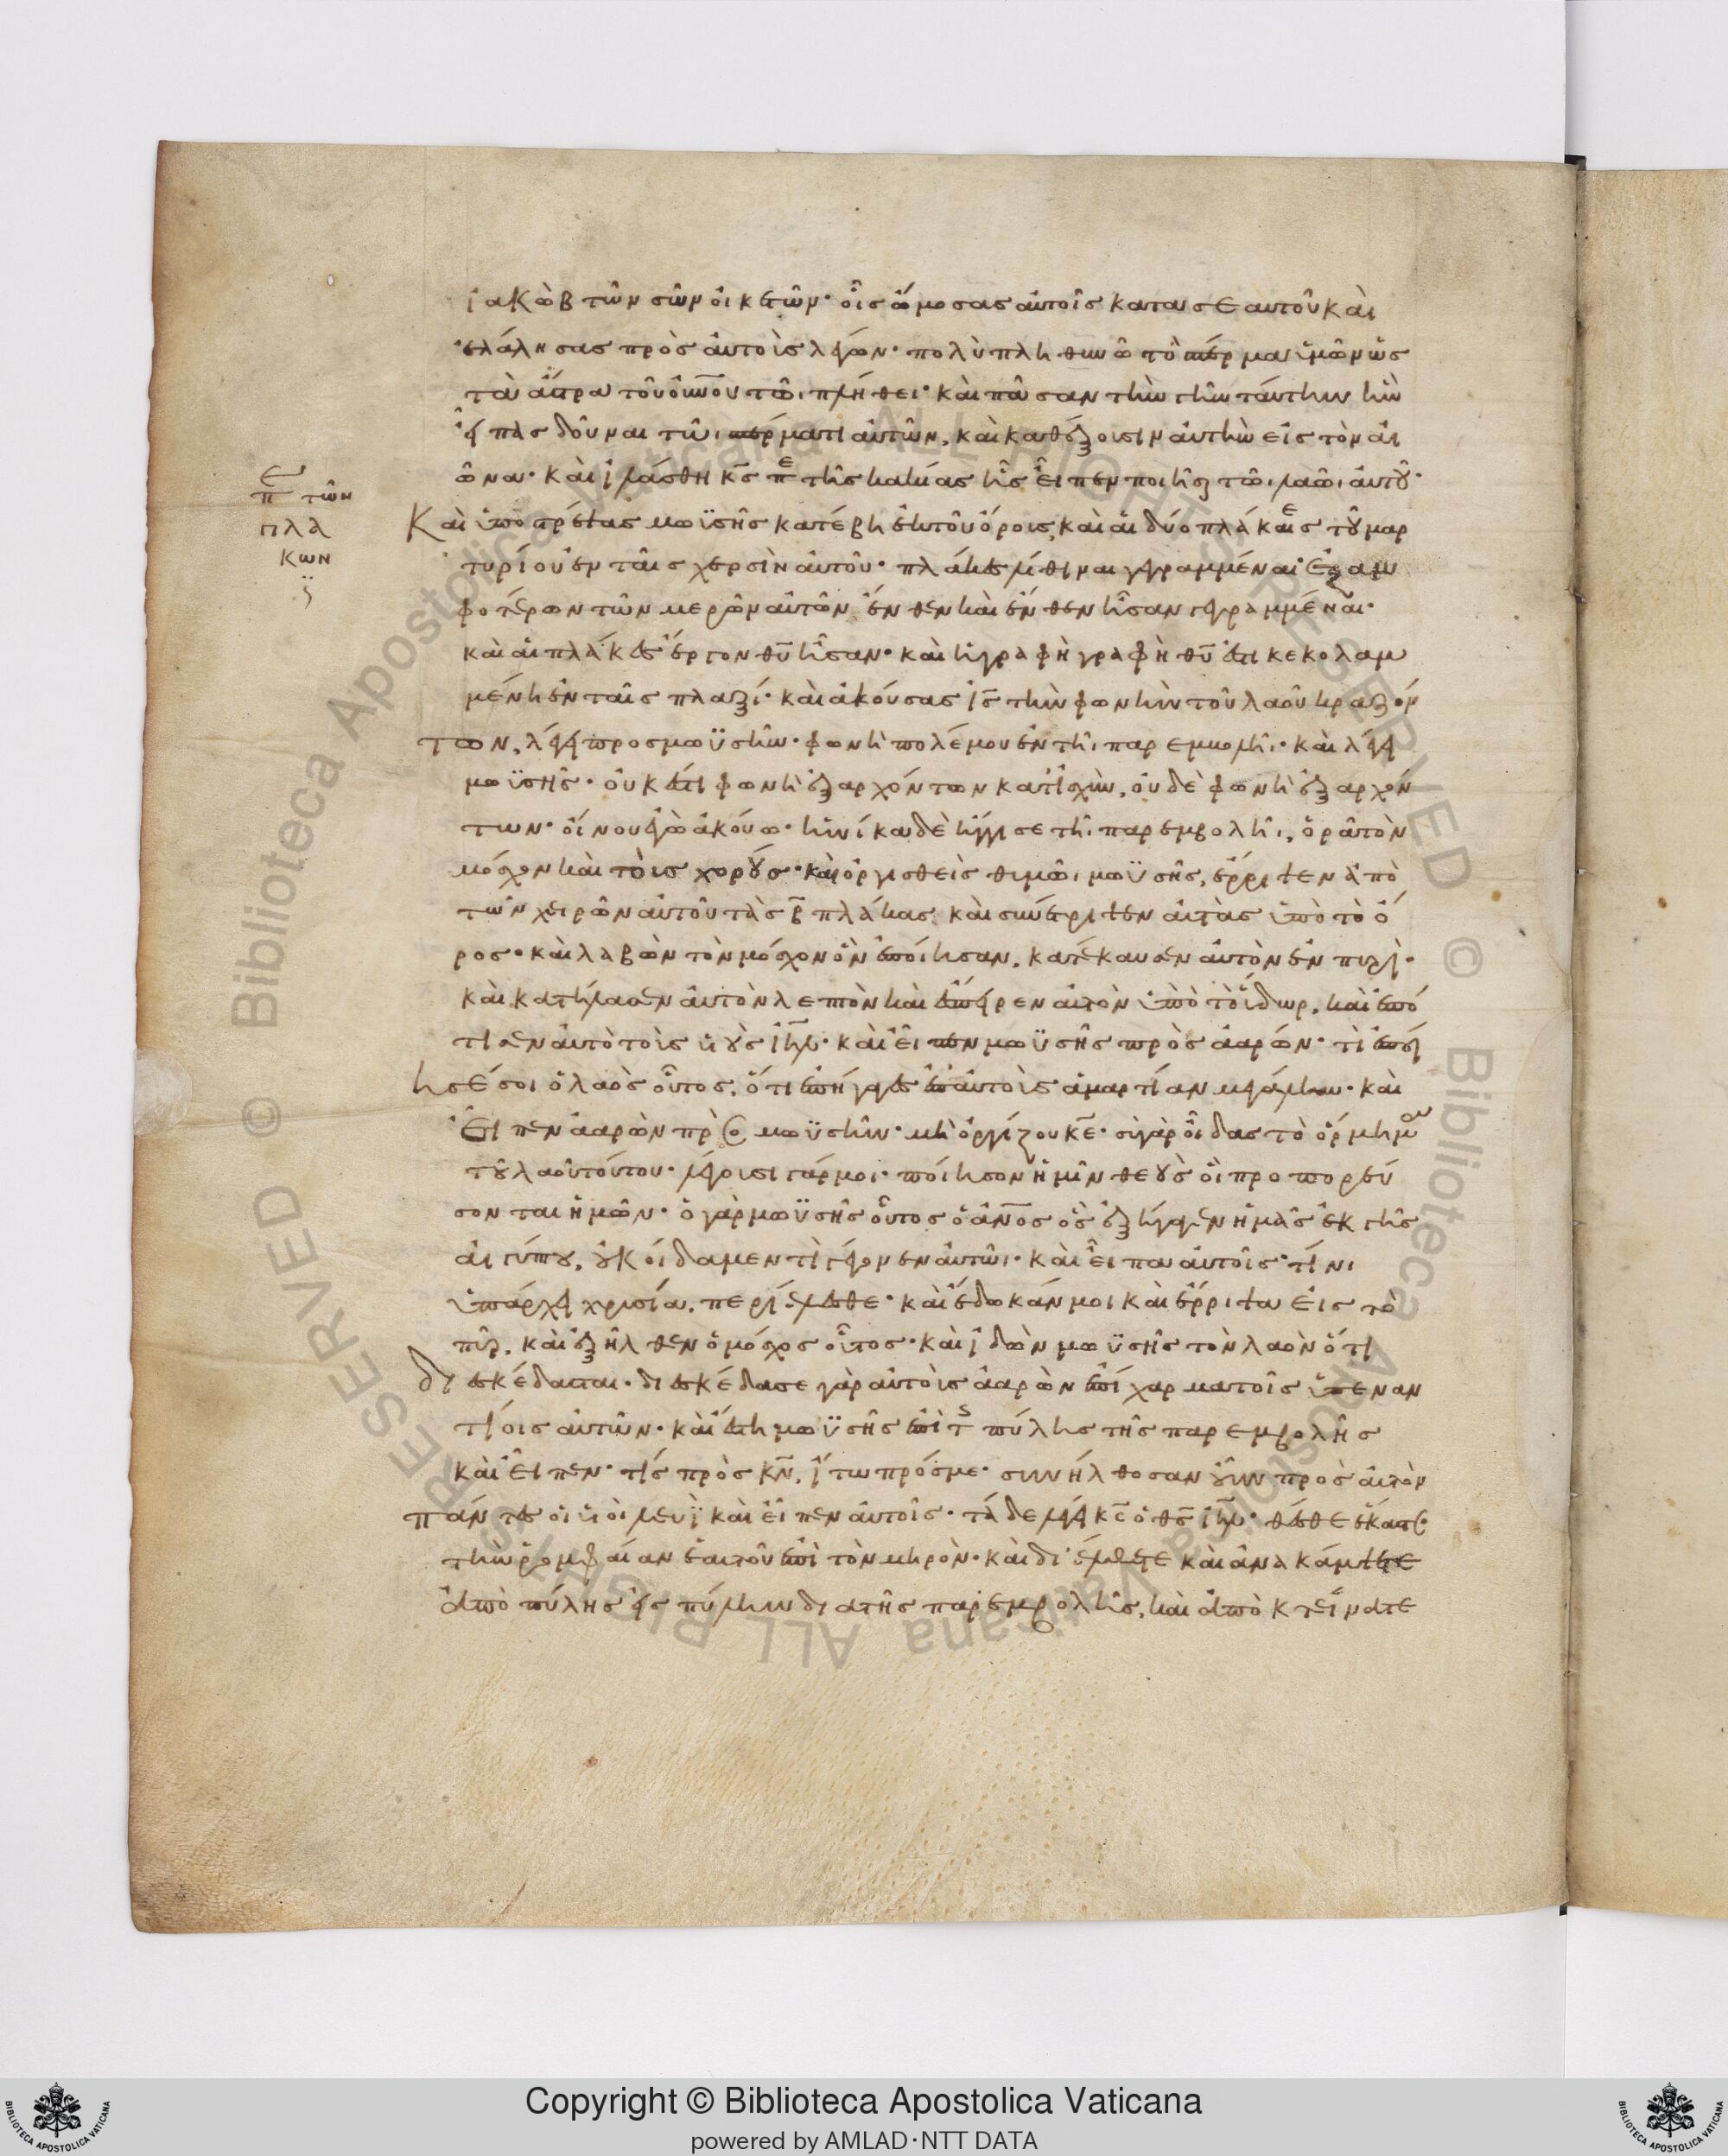 ἰακὼβ τῶν σῶν οἰκετῶν· οἷς ὤμοσας αὐτοῖς κατα σεαυτοῦ καὶ
ἐλάλησας πρὸς αὐτοὺς λέγων· πολὺ πληθυνῶ τὸ σπέρμα ὑμῶν ὡς
τὰ ἄστρα τοῦ οὐνοῦ τῶι πλήθει· καὶ πᾶσαν τὴν γῆν ταύτην ἣν
εἶπας δοῦναι τῶι σπέρματι αὐτῶν, καὶ καθέξουσιν αὐτὴν εἰς τὸν αἰ
ῶνα· καὶ ἱλάσθη κς πε τῆς κακίας ἧς εἶπεν ποιῆσαι τῶι λαῶι αὐτοῦ·
Καὶ ὑποστρέψας μωϋσῆς κατέβη ἐκ τοῦ ὄρους, καὶ αἱ δύο πλάκες τοῦ μαρ
τυρίου ἐν ταῖς χερσὶν αὐτοῦ· πλάκες λίθιναι γεγραμμέναι ἐξ ἀμ
φοτέρων τῶν μερῶν αὐτῶν ἔνθεν καὶ ἔνθεν ἦσαν γεγραμμέναι·
καὶ αἱ πλάκες ἔργον θυ ἦσαν· καὶ ἡ γραφὴ γραφὴ θυ ἐστι κεκολαμ
μένη ἐν ταῖς πλαξί· καὶ ἀκούσας ις τὴν φωνὴν τοῦ λαοῦ κραζόν
των, λέγει προς μωϋσῆν· φωνὴ πολέμου ἐν τῆι παρεμβολῆι· καὶ λέγει
μωϋσῆς· οὐκ ἔστι φωνὴ ἐξαρχόντων κατ ἰσχὺν, οὐδὲ φωνὴ ἐξαρχόν
των· οἴνου ἐγὼ ἀκούω· ἡνίκα δὲ ἤγγισε τῆι παρεμβολῆι, ὁρᾶ τὸν
μόσχον καὶ τοὺς χορούς· καὶ ὀργισθεὶς θυμῶι μωϋσῆς, ἔρριψεν ἀπὸ
τῶν χειρῶν αὐτοῦ τὰς β πλάκας καὶ συνέτριψεν αὐτὰς ὑπὸ τὸ ὄ
ρος· καὶ λαβὼν τὸν μόσχον ὃν ἐποίησαν, κατέκαυσεν αὐτὸν ἐν πυρί·
καὶ κατήλασεν αὐτὸν λεπτὸν καὶ ἔσπειρεν αὐτὸν ὑπὸ τὸ ὕδωρ, καὶ ἐπό
τισεν αὐτὸ τοὺς υἱοὺς ιηλ· καὶ εἶπεν μωϋσῆς πρὸς ἀαρών· τὶ ἐποί
ησέ σοι ὁ λαὸς οὗτος, ὅτι ἐπήγαγες ἐπ αὐτοὺς ἁμαρτίαν μεγάλην· καὶ
εἶπεν ἀαρὼν πρὸς μωϋσῆν· μὴ ὀργίζου κε· σὺ γὰρ οἶδας τὸ ὅρμημα
τοῦ λαοῦ τούτου· λέγουσι γάρ μοι· ποίησον ἡμῖν θεοὺς οἳ προπορεύ
σονται ἡμῶν· ὁ γὰρ μωϋσῆς οὗτος ὁ ἄνος ὃς ἐξήγαγεν ἡμᾶς ἐκ γῆς
αἰγύπτου, οὐκ οἴδαμεν τὶ γέγονεν αὐτῶι· καὶ εἶπα αὐτοῖς· τίνι
ὑπάρχει χρυσία, περιέλεσθε· καὶ ἔδωκάν μοι καὶ ἔρριψα εἰς τὸ
πῦρ, καὶ ἐξῆλθεν ὁ μόσχος οὗτος· καὶ ἰδὼν μωϋσῆς τὸν λαὸν ὅτι
διεσκέδασται· διεσκέδασε γὰρ αὐτοὺς ἀαρὼν ἐπίχαρμα τοῖς ὑπεναν
τίοις αὐτῶν· καὶ ἔστη μωϋσῆς ἐπὶ τς πύλης τῆς παρεμβολῆς
καὶ εἶπεν· τίς πρὸς κν, ἴτω πρός με· συνήλθοσαν οὖν πρὸς αὐτὸν
πάντες οἱ υἱοὶ λευὶ καὶ εἶπεν αὐτοῖς· τάδε λέγει κς ὁ θς ιηλ· θέσθε ἕκαστος
τὴν ῥομφαίαν ἑαυτοῦ ἐπὶ τὸν μηρὸν· καὶ διέλθετε καὶ ἀνακάμψατε
ἀπὸ πύλης εἰς πύλην δια τῆς παρεμβολῆς, καὶ ἀποκτείνατε
πε τῶν
πλα
κων
Copyright © Biblioteca Apostolica Vaticana
powered by AMLAD·NTT DATA